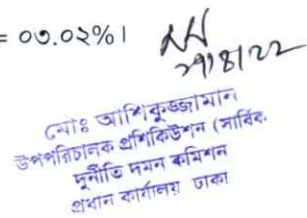 = ০৩.০২%।
মোঃ আশিকুজ্জামান
উপপরিচালক প্রশিকিউশন (সার্বিক
দুর্নীতি দমন কমিশন
প্রধান কার্যালয় ঢাকা